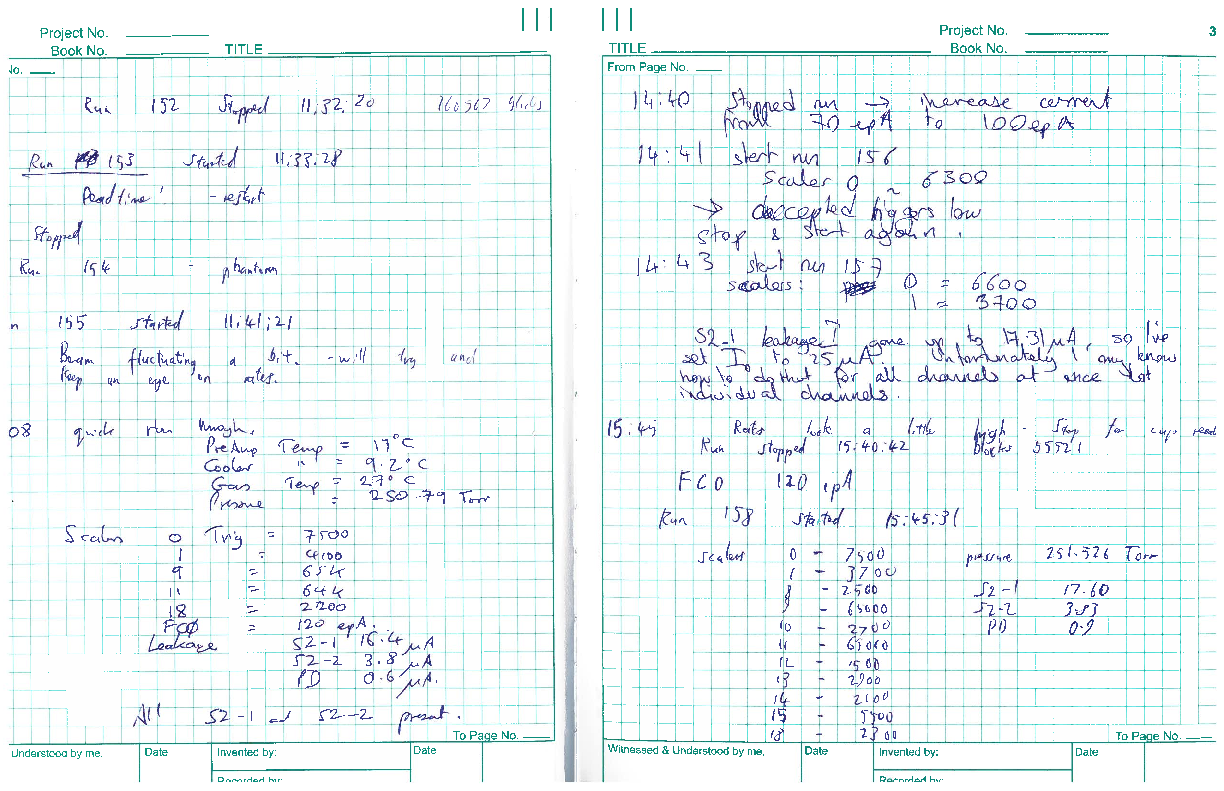 Project No.
Book No.
TITLE
No.
Run 152 Stopped 11:32:20
Run 153 started 11:33:28
Deadtime! - restart
Stopped
Run 154 - phantom
n 155 started 11:41:21
Beam fluctuating a bit. - will try and
keep an eye on rates.
08 quick run through.
PreAmp Temp = 17°C
Cooler " = 9.2°C
Gas Temp = 27°C
Pressure = 250.79 Torr
Scalers 0 Trig = 7500
1 = 4100
9 = 65K
11 = 64K
18 = 2200
FC0 = 120 epA.
Leakage S2-1 16.4 μA
S2-2 3.8 μA
PD 0.6 μA.
All S2-1 and S2-2 present.
To Page No.
Understood by me.
Date
Invented by:
Date
Recorded by:
Project No.
3
TITLE
Book No.
From Page No.
14:40 Stopped run → increase current
from 70 epA to 100 epA
14:41 start run 156
Scaler 0 ~ 6300
→ accepted triggers low
stop & start again.
14:43 start run 157
scalers: 0 = 6600
1 = 3700
S2-1 leakage gone up to 17.31 μA, so I've
set I to 25 μA. Unfortunately I only know
how to do that for all channels at once not
individual channels.
15:45 Rates look a little high - stop for cup read
Run stopped 15:40:42 blocks 55521
FC0 120 epA
Run 158 started 15:45:31
scalers 0 - 7500 pressure 251.526 Torr
1 - 3700
8 - 2500 S2-1 17.60
9 - 65000 S2-2 3.83
10 - 2700 PD 0.9
11 - 65000
12 - 1500
13 - 2900
14 - 2100
15 - 5500
18 - 2300
To Page No.
Witnessed & Understood by me,
Date
Invented by:
Date
Recorded by: